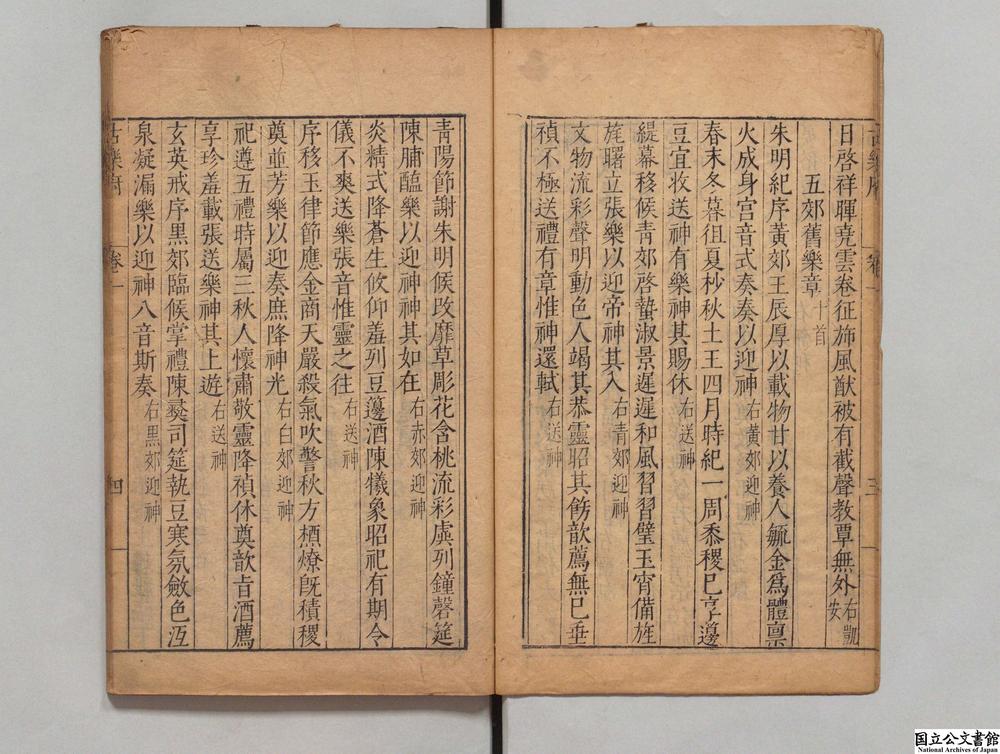 日啓祥暉堯雲卷征斾風猷被有截聲教覃無外右凱安
五郊舊樂章十首
朱明紀序黃郊王辰厚以載物甘以養人毓金爲體稟
火成身宮音式奏奏以迎神右黃郊迎神
春末冬暮徂夏杪秋土王四月時紀一周黍稷已享籩
豆宜收送神有樂神其賜休右送神
緹幕移候青郊啓蟄淑景遲遲和風習習璧玉宵備旌
旄曙立張樂以迎帝神其入右青郊迎神
文物流彩聲明動色人竭其恭靈昭其飭歆薦無已垂
禎不極送禮有章惟神還軾右送神
三
青陽節謝朱明候改靡草彫花含桃流彩虡列鐘磬筵
陳脯醢樂以迎神神其如在右赤郊迎神
炎精式降蒼生攸仰羞列豆籩酒陳犧象昭祀有期令
儀不爽送樂張音惟靈之往右送神
序移玉律節應金商天嚴殺氣吹警秋方槱燎旣積稷
奠並芳樂以迎奏庶降神光右白郊迎神
祀遵五禮時屬三秋人懷肅敬靈降禎休奠歆旨酒薦
享珍羞載張送樂神其上遊右送神
玄英戒序黑郊臨候掌禮陳彝司筵執豆寒氛斂色沍
泉凝漏樂以迎神八音斯奏右黑郊迎神
古樂府 卷一 四
国立公文書館
National Archives of Japan